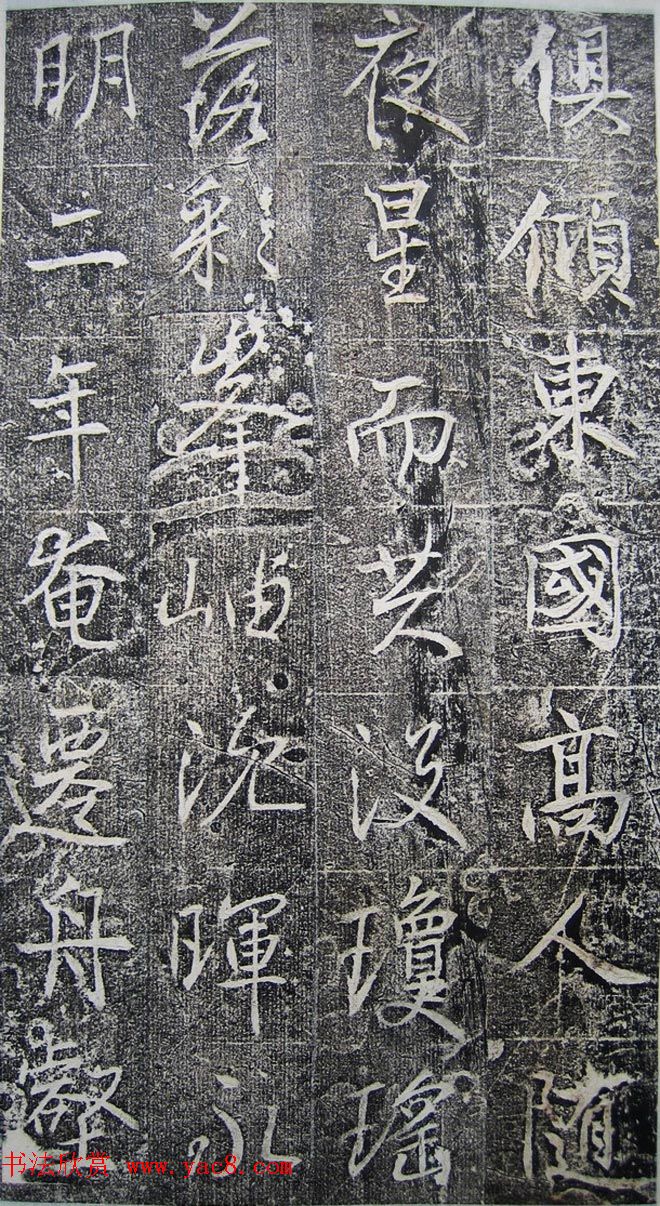 俱傾東國高人隨
夜星而共没瓊瑤
落彩峯岫沉暉永
明二年奄遷舟壑
书法欣赏 www.yac8.com